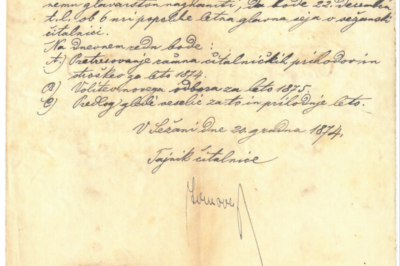 nemu glavarstvu naznaniti, da bode 22. decembra
t. l. ob 6 uri popoldne letna glavna seja v sežanski
čitalnici.
Na dnevnem redu bode:
A.) Pretresovanje računa čitalničkih prihodov in
stroškov za leto 1874.
B.) Volitev novega odbora za leto 1875.
C.) Predlog glede veselic za to in prihodnje leto.
V Sežani dne 20. grudna 1874.
Tajnik čitalnice